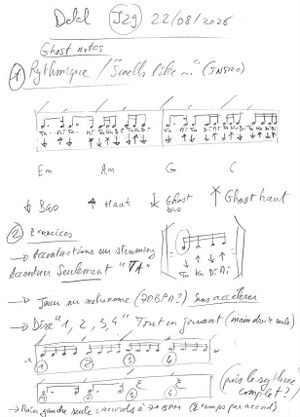 Delal J29 22/08/2026
Ghost notes
① Rythmique / "Smells like..." (INTRO)
Em Am G C
↓ Bas ↑ Haut Ghost bas Ghost haut
② Exercices
→ Accentuations su strumming
Accentuer Seulement "TA"
Ta Ka Di Mi
→ Jouer au métronome (70BPM?) Sans accélérer
→ Dire "1, 2, 3, 4" Tout en jouant (main droite seule)
① ② ③ ④
(puis le rythme complet ?)
→ Main gauche seule = accords à 70 BPM (2 temps par accord)